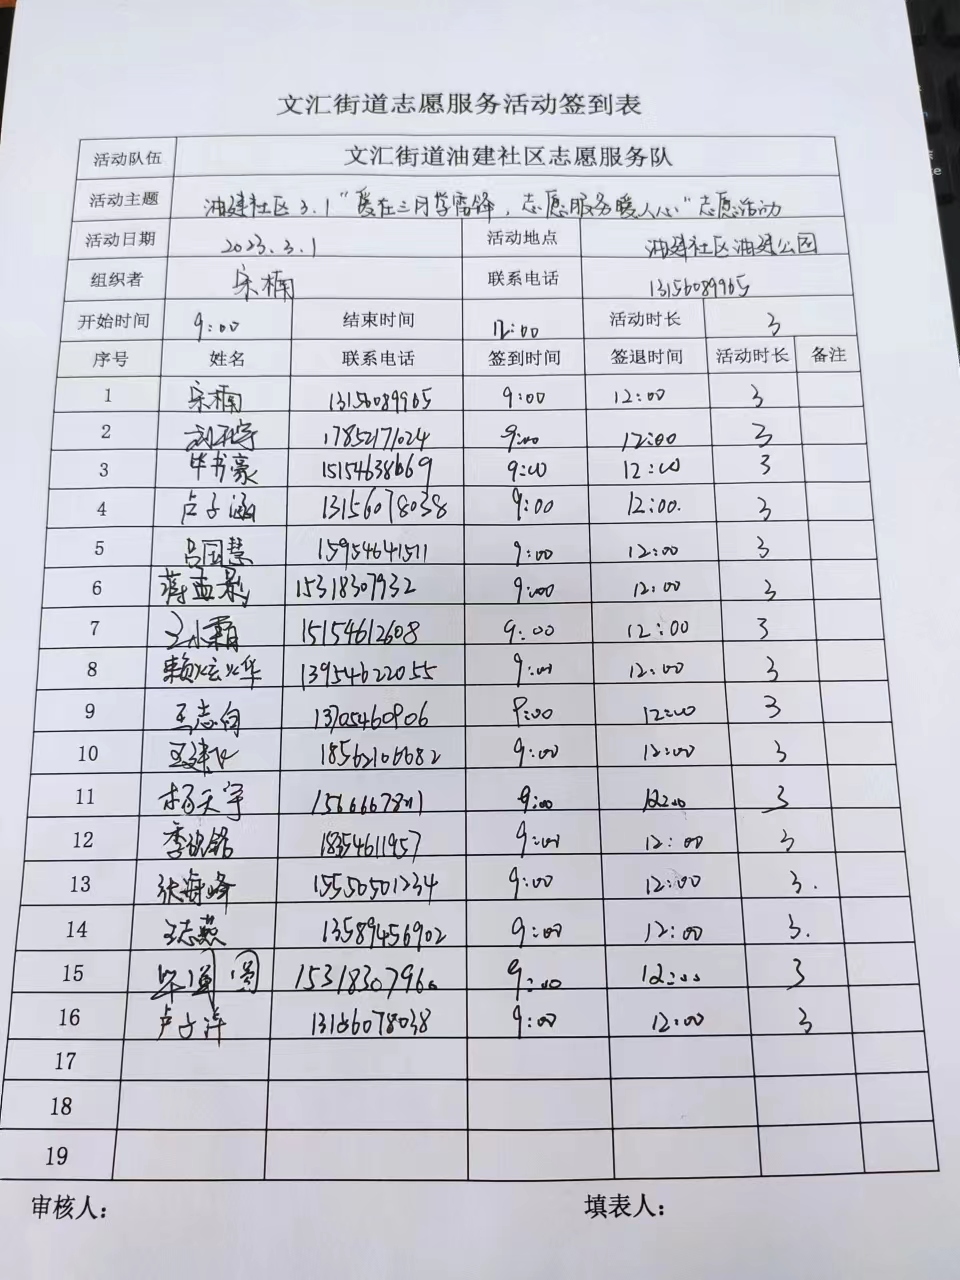 文汇街道志愿服务活动签到表
活动队伍 文汇街道油建社区志愿服务队
活动主题 油建社区3.1“爱在三月学雷锋，志愿服务暖人心”志愿活动
活动日期 2023.3.1 活动地点 油建社区油建公园
组织者 宋楠 联系电话 13156089965
开始时间 9:00 结束时间 12:00 活动时长 3
序号 姓名 联系电话 签到时间 签退时间 活动时长 备注
1 宋楠 13156089965 9:00 12:00 3
2 17852171024 9:00 12:00 3
3 毕书豪 15154638669 9:00 12:00 3
4 卢子涵 13156078038 9:00 12:00. 3
5 吕国慧 15954641511 9:00 12:00 3
6 蒋孟影 15318307932 9:00 12:00 3
7 王小霜 15154612608 9:00 12:00 3
8 赖炫烨 13954622055 9:00 12:00 3
9 王志向 13705460906 9:00 12:00 3
10 王建飞 18562106682 9:00 12:00 3
11 杨天宇 9:00 12:00 3
12 18354611957 9:00 12:00 3
13 张海峰 15550501234 9:00 12:00 3.
14 王志燕 13589456902 9:00 12:00 3.
15 15318307960 9:00 12:00 3
16 卢子洋 13156078038 9:00 12:00 3
17
18
19
审核人： 填表人：